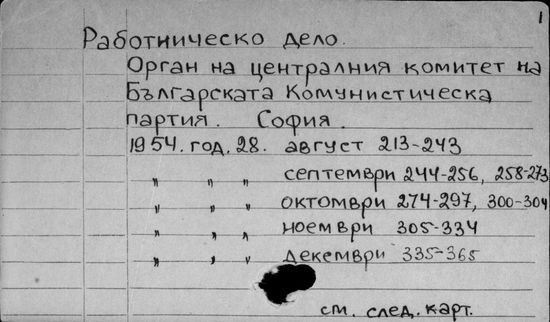 1
Работническо дело.
Орган на централния комитет на
Българската Комунистическа
партия. София.
1954. год. 28. август 213-243
" " " септември 244-256, 258-273
" " " октомври 274-297, 300-304
" " " ноември 305-334
" " " декември 335-365
см. след. карт.